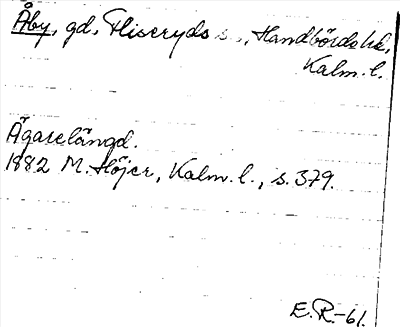 Åby, gd, Fliseryds s., Handbörds hd,
Kalm. l.
Ägarelängd.
1882 M. Höjer, Kalm. l., s. 379.
E.R.-61.